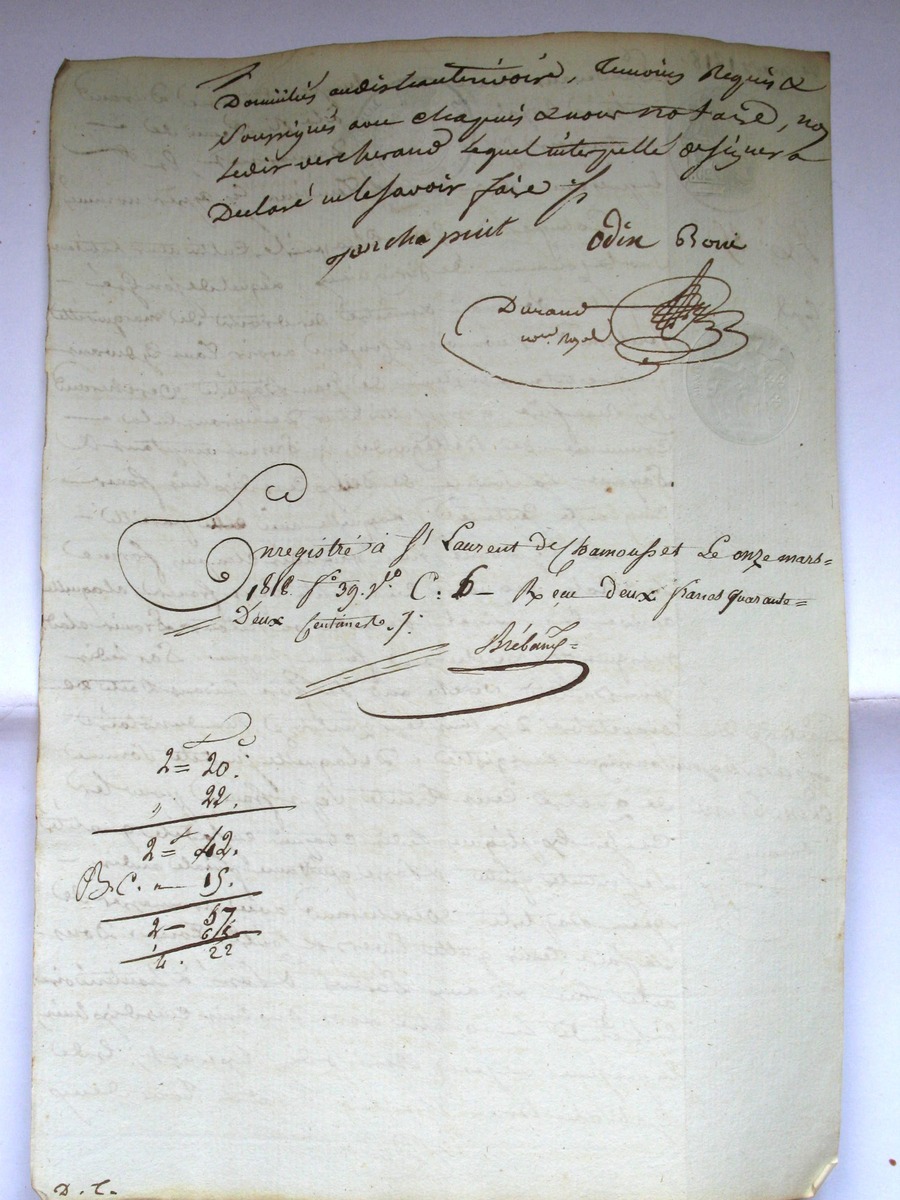 Domiciliés audit hauterivoire, Temoins Requis &
Soussignés avec chapuis & nous notaire, non
Ledit vercherand Lequel interpellé de signer a
Declaré ne le savoir faire
Odin Boni
Durand
nore. royal
Enregistré à St Laurent de Chamousset Le onze mars
1818. fo 39. Vo C: 6 Reçu deux francs quarante=
Deux Centimes
2= 20.
" 22.
2= 42.
B.C. 15.
2— 57
65
4. 22
D. C.